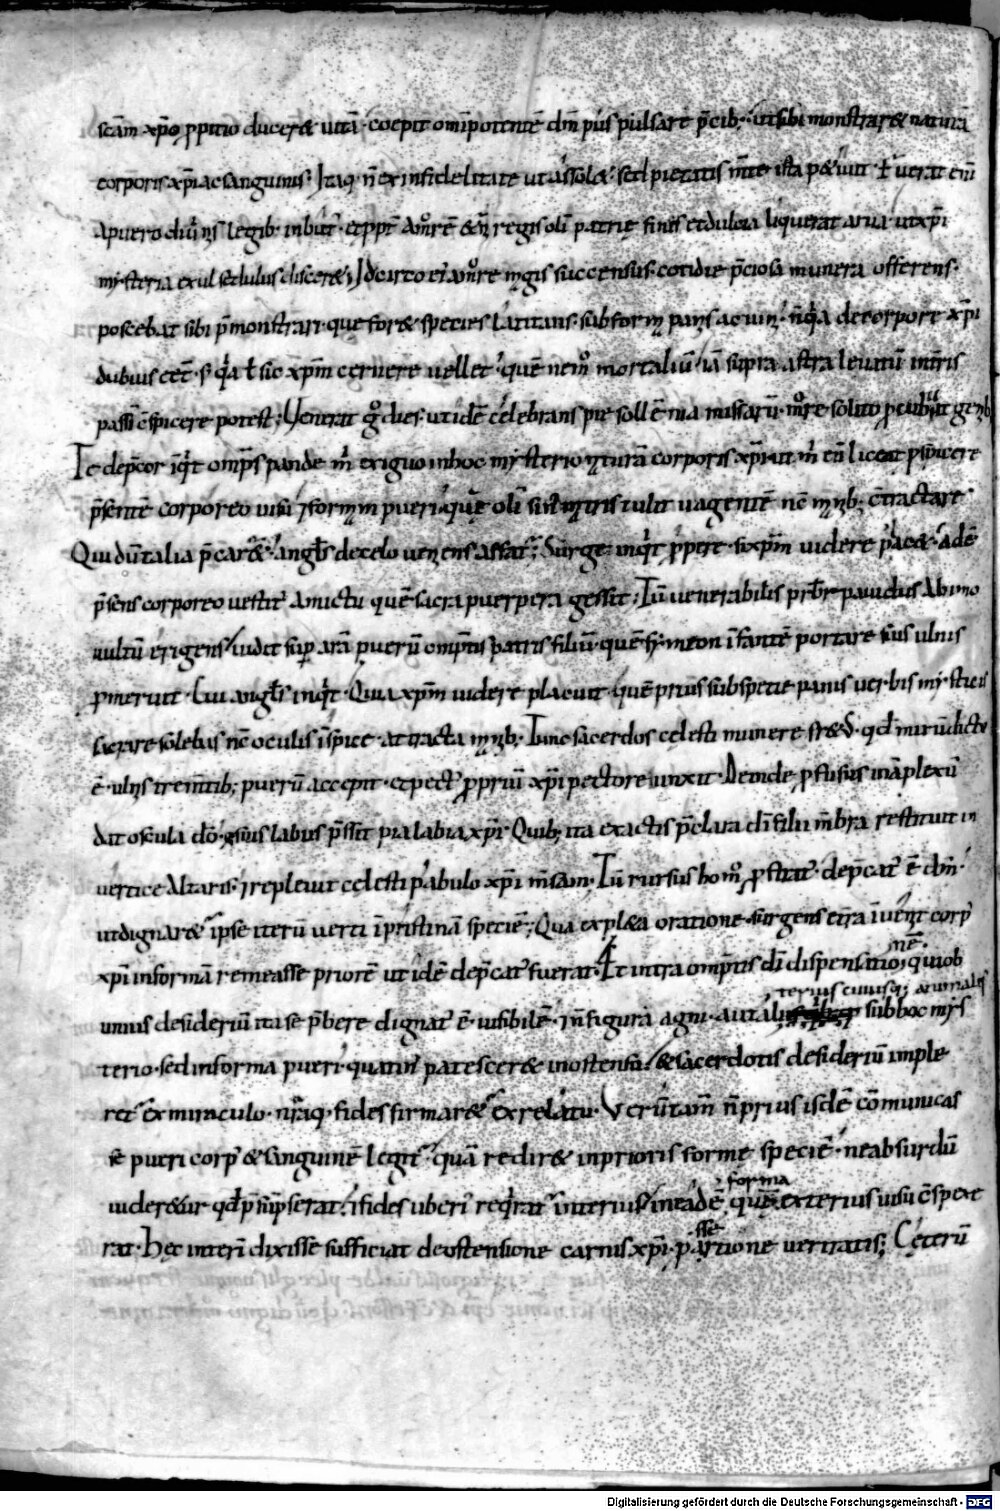 scām xp̄o ꝓpitio ducer& uitā · coepit omīpotentē dn̄m p̄us pulsare p̄cib; · ut sibi monstrar& naturā
corporis xp̄i ac sanguinis; Itaq; n̄ ex infidelitate ut assol& · sed pietatis m̄te ista p&iuit · erat enī
a puero diuinis legib; inbut᷑ · et ꝓpt̄ amorē regis olī patrię fines et dulcia liquerat arua · ut xp̄i
mysteria exul sedulus discer&; Idcirco ei᷑ amore magis succensus · cotidie p̄ciosa munera offerens ·
poscebat sibi p̄monstrari que for& species latitans · sub forma panis ac uini · n̄ qa de corpore xp̄i
dubius eet᷑ · s; qa t̄ sic xp̄m cernere uellet · quē nemo mortaliū · iā supra astra leuatū in t̄ris
passī c̄spicere potest; Uenerat g° dies · ut idē celebrans pie sollēnia missarū · more solito ꝓcubuit genib;
Te dep̄cor inqt omp̄s pande m̄ exiguo in hoc mysterio naturā corporis xp̄i · ut m̄ eū liceat ꝓspicere
p̄sentē corporeo uisu · & formam pueri · quē olī sinus matris tulit uagentē nc̄ manib; c̄tractare
Qui dū talia p̄car& · angl̄s de celo ueniens affat᷑; Surge inqt ꝓpere · si xp̄m uidere plac& · adē
p̄sens corporeo uestit᷑ amictu quē sacra puerpera gessit; Tū uenerabilis prb̄r pauidus ab imo
uultū erigens uidit sup̄ arā puerū omp̄tis patris filiū · quē symeon īfantē portare suis ulnis
ꝓmeruit · Cui angl̄s inqt · Quia xp̄m uidere placuit · quē prius sub specie panis uerbis mysticis
sacrare solebas nc̄ oculis īspice · attracta manib; · Tunc sacerdos celesti munere fret᷑ · qd̄ mirū dictu
ē · ulnis tremētib; puerū accepit · et pect᷑ ꝓpriū xp̄i pectore iunxit · Deinde ꝓfusus in āplexū
dat oscula dō · & suis labiis p̄ssit pia labia xp̄i · Quib; ita exactis p̄clara dī filii m̄bra restituit in
uertice altaris · & repleuit celesti pabulo xp̄i m̄sam · Tū rursus homo ꝓstrat᷑ · dep̄cat᷑ ē dn̄m ·
ut dignar& ipse iterū uerti ī pristinā speciē; Qua expl&a oratione · surgens et̄ra īuenit corp᷑
xp̄i in formā remeasse priorē ut idē dep̄cat᷑ fuerat · At intra omp̄tis dī dispensationē · qui ob
unius desideriū ita se p̄bere dignat᷑ ē · uisibilē · n̄ in figura agni · aut al terius cuiusq; animalis sub hoc mys
terio · sed in forma pueri · quatin᷑ patescer& in ostensū · & sacerdotis desideriū imple
ret᷑ ex miraculo · nr̄aq; fides firmar& ex relatu · Verūtam̄ n̄ prius isdē cōmunicas
se pueri corp᷑ & sanguinē legit᷑ · quā redir& in prioris forme speciē · ne absurdū
uider&ur qd̄ p̄sūpserat · si fides uberi᷑ reqrat᷑ interius in eadē forma quē exterius uisu c̄spexe
rat · Hęc interī dixisse sufficiat de ostensione carnis xp̄i · & assertione ueritatis; Cęterū
Digitalisierung gefördert durch die Deutsche Forschungsgemeinschaft - DFG